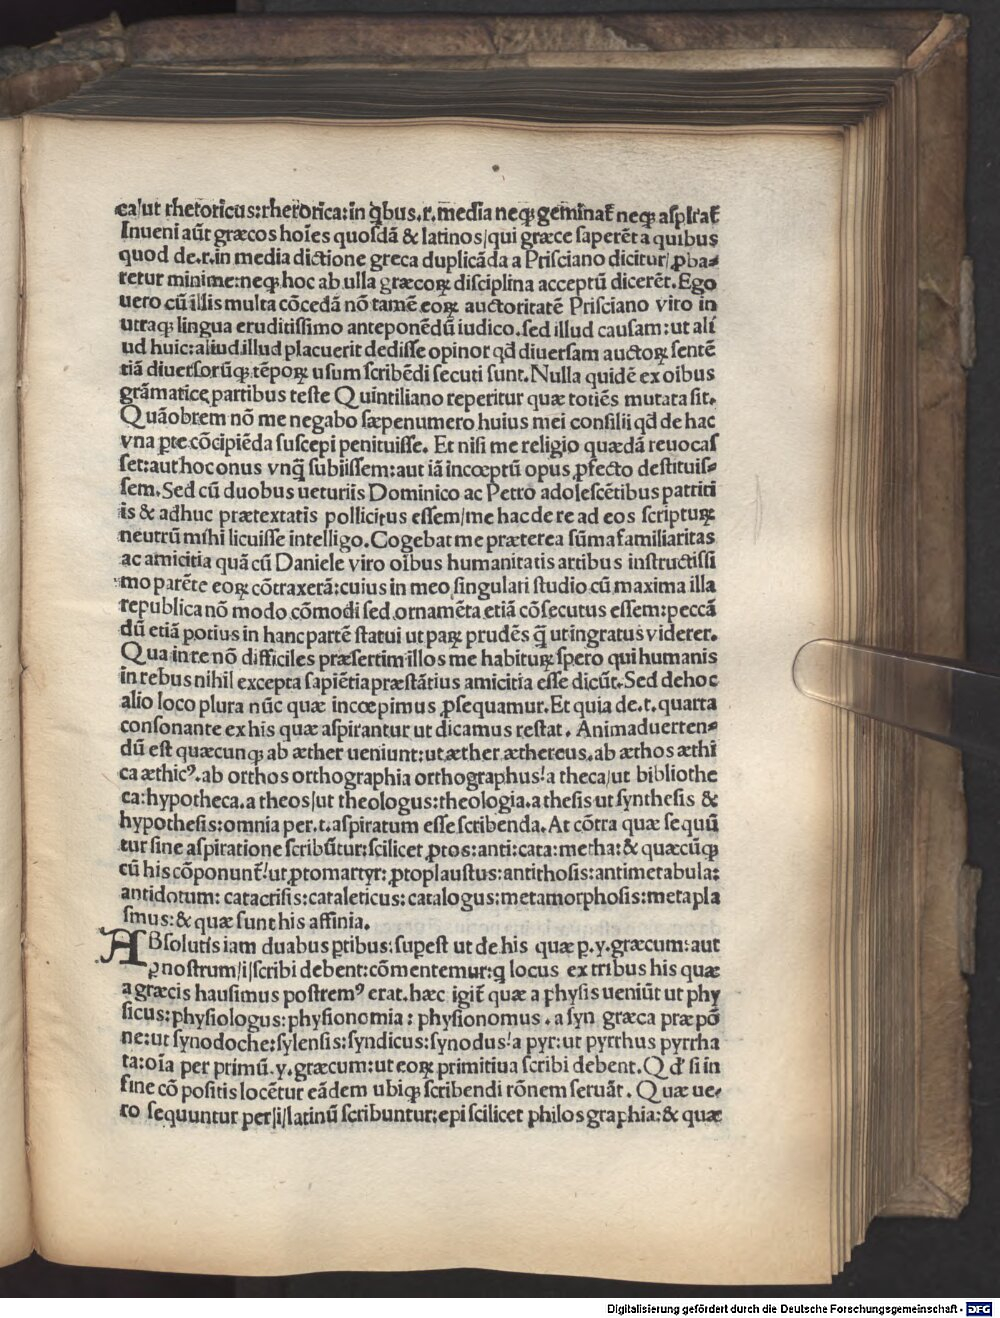 ca/ut rhetoricus:rhetorica:in q̃bus.r.media neqꝫ geminat̃ neqꝫ aſpirat̃
Inueni aũt græcos hoi͂es quoſdã & latinos/qui græce ſaperẽt a quibus
quod de.r.in media dictione greca duplicãda a Priſciano dicitur/ꝓba⸗
retur minime:neqꝫ hoc ab ulla græcoꝝ diſciplina acceptũ dicerẽt. Ego
uero cũ illis multa cõcedã nõ tamẽ eoꝝ auctoritatẽ Priſciano viro in
utraqꝫ lingua eruditiſſimo anteponẽdũ iudico.ſed illud cauſam:ut ali
ud huic:aliud.illud placuerit dediſſe opinor qd̃ diuerſam auctoꝝ ſentẽ
tiã diuerſorũqꝫ tẽpoꝝ uſum ſcribẽdi ſecuti ſunt. Nulla quidẽ ex oi͂bus
grãmaticę partibus teſte Quintiliano reperitur quæ totiẽs mutata ſit.
Quãobrem nõ me negabo ſæpenumero huius mei conſilii qd̃ de hac
vna ꝑte cõcipiẽda ſuſcepi penituiſſe. Et niſi me religio quædã reuocaſ
ſet:aut hoc onus vnq̃ ſubiiſſem:aut iã incœptũ opus ꝓfecto deſtituiſ⸗
ſem. Sed cũ duobus ueturiis Dominico ac Petro adoleſcẽtibus patriti
is & adhuc prætextatis pollicitus eſſem/me hac de re ad eos ſcripturꝝ
neutrũ mihi licuiſſe intelligo. Cogebat me præterea ſũma familiaritas
ac amicitia quã cũ Daniele viro oi͂bus humanitatis artibus inſtructiſſi
mo parẽte eoꝝ cõtraxerã:cuius in meo ſingulari ſtudio cũ maxima illa
republica nõ modo cõmodi ſed ornamẽta etiã cõſecutus eſſem:peccã
dũ etiã potius in hanc partẽ ſtatui ut paꝝ prudẽs q̃ ut ingratus viderer.
Qua in re nõ difficiles præſertim illos me habiturꝝ ſpero qui humanis
in rebus nihil excepta ſapiẽtia præſtãtius amicitia eſſe dicũt. Sed de hoc
alio loco plura nũc quæ incœpimus ꝓſequamur. Et quia de.t.quarta
conſonante ex his quæ aſpirantur ut dicamus reſtat. Animaduerten⸗
dũ eſt quæcunqꝫ ab æther ueniunt:ut æther æthereus.ab æthos æthi
ca æthicꝰ.ab orthos orthographia orthographus!a theca/ut bibliothe
ca:hypotheca.a theos/ut theologus:theologia.a theſis ut ſyntheſis &
hypotheſis:omnia per.t.aſpiratum eſſe ſcribenda. At cõtra quæ ſequũ
tur ſine aſpiratione ſcribũtur:ſcilicet ꝓtos:anti:cata:metha:& quæcũqꝫ
cũ his cõponunt̃!ut ꝓtomartyr: ꝓtoplauſtus:antithoſis:antimetabula:
antidotum: catacriſis:cataleticus:catalogus:metamorphoſis:metapla
ſmus:& quæ ſunt his affinia.
ABſolutis iam duabus ꝑtibus:ſupeſt ut de his quæ p.y.græcum:aut
ꝑ noſtrum/i/ſcribi debent:cõmentemur:q̃ locus ex tribus his quæ
a græcis hauſimus poſtremꝰ erat.hæc igit̃ quæ a phyſis ueniũt ut phy
ſicus:phyſiologus:phyſionomia: phyſionomus.a ſyn græca præpõ
ne:ut ſynodoche:ſylenſis:ſyndicus:ſynodus!a pyr:ut pyrrhus pyrrha
ta:oi͂a per primũ.y.græcum:ut eoꝝ primitiua ſcribi debent. Qd̃ ſi in
fine cõpoſitis locẽtur eãdem ubiqꝫ ſcribendi rõnem ſeruãt. Quæ ue⸗
ro ſequuntur per/i/latinũ ſcribuntur:epi ſcilicet philos graphia:& quæ
Digitalisierung gefördert durch die Deutsche Forschungsgemeinschaft - DFG